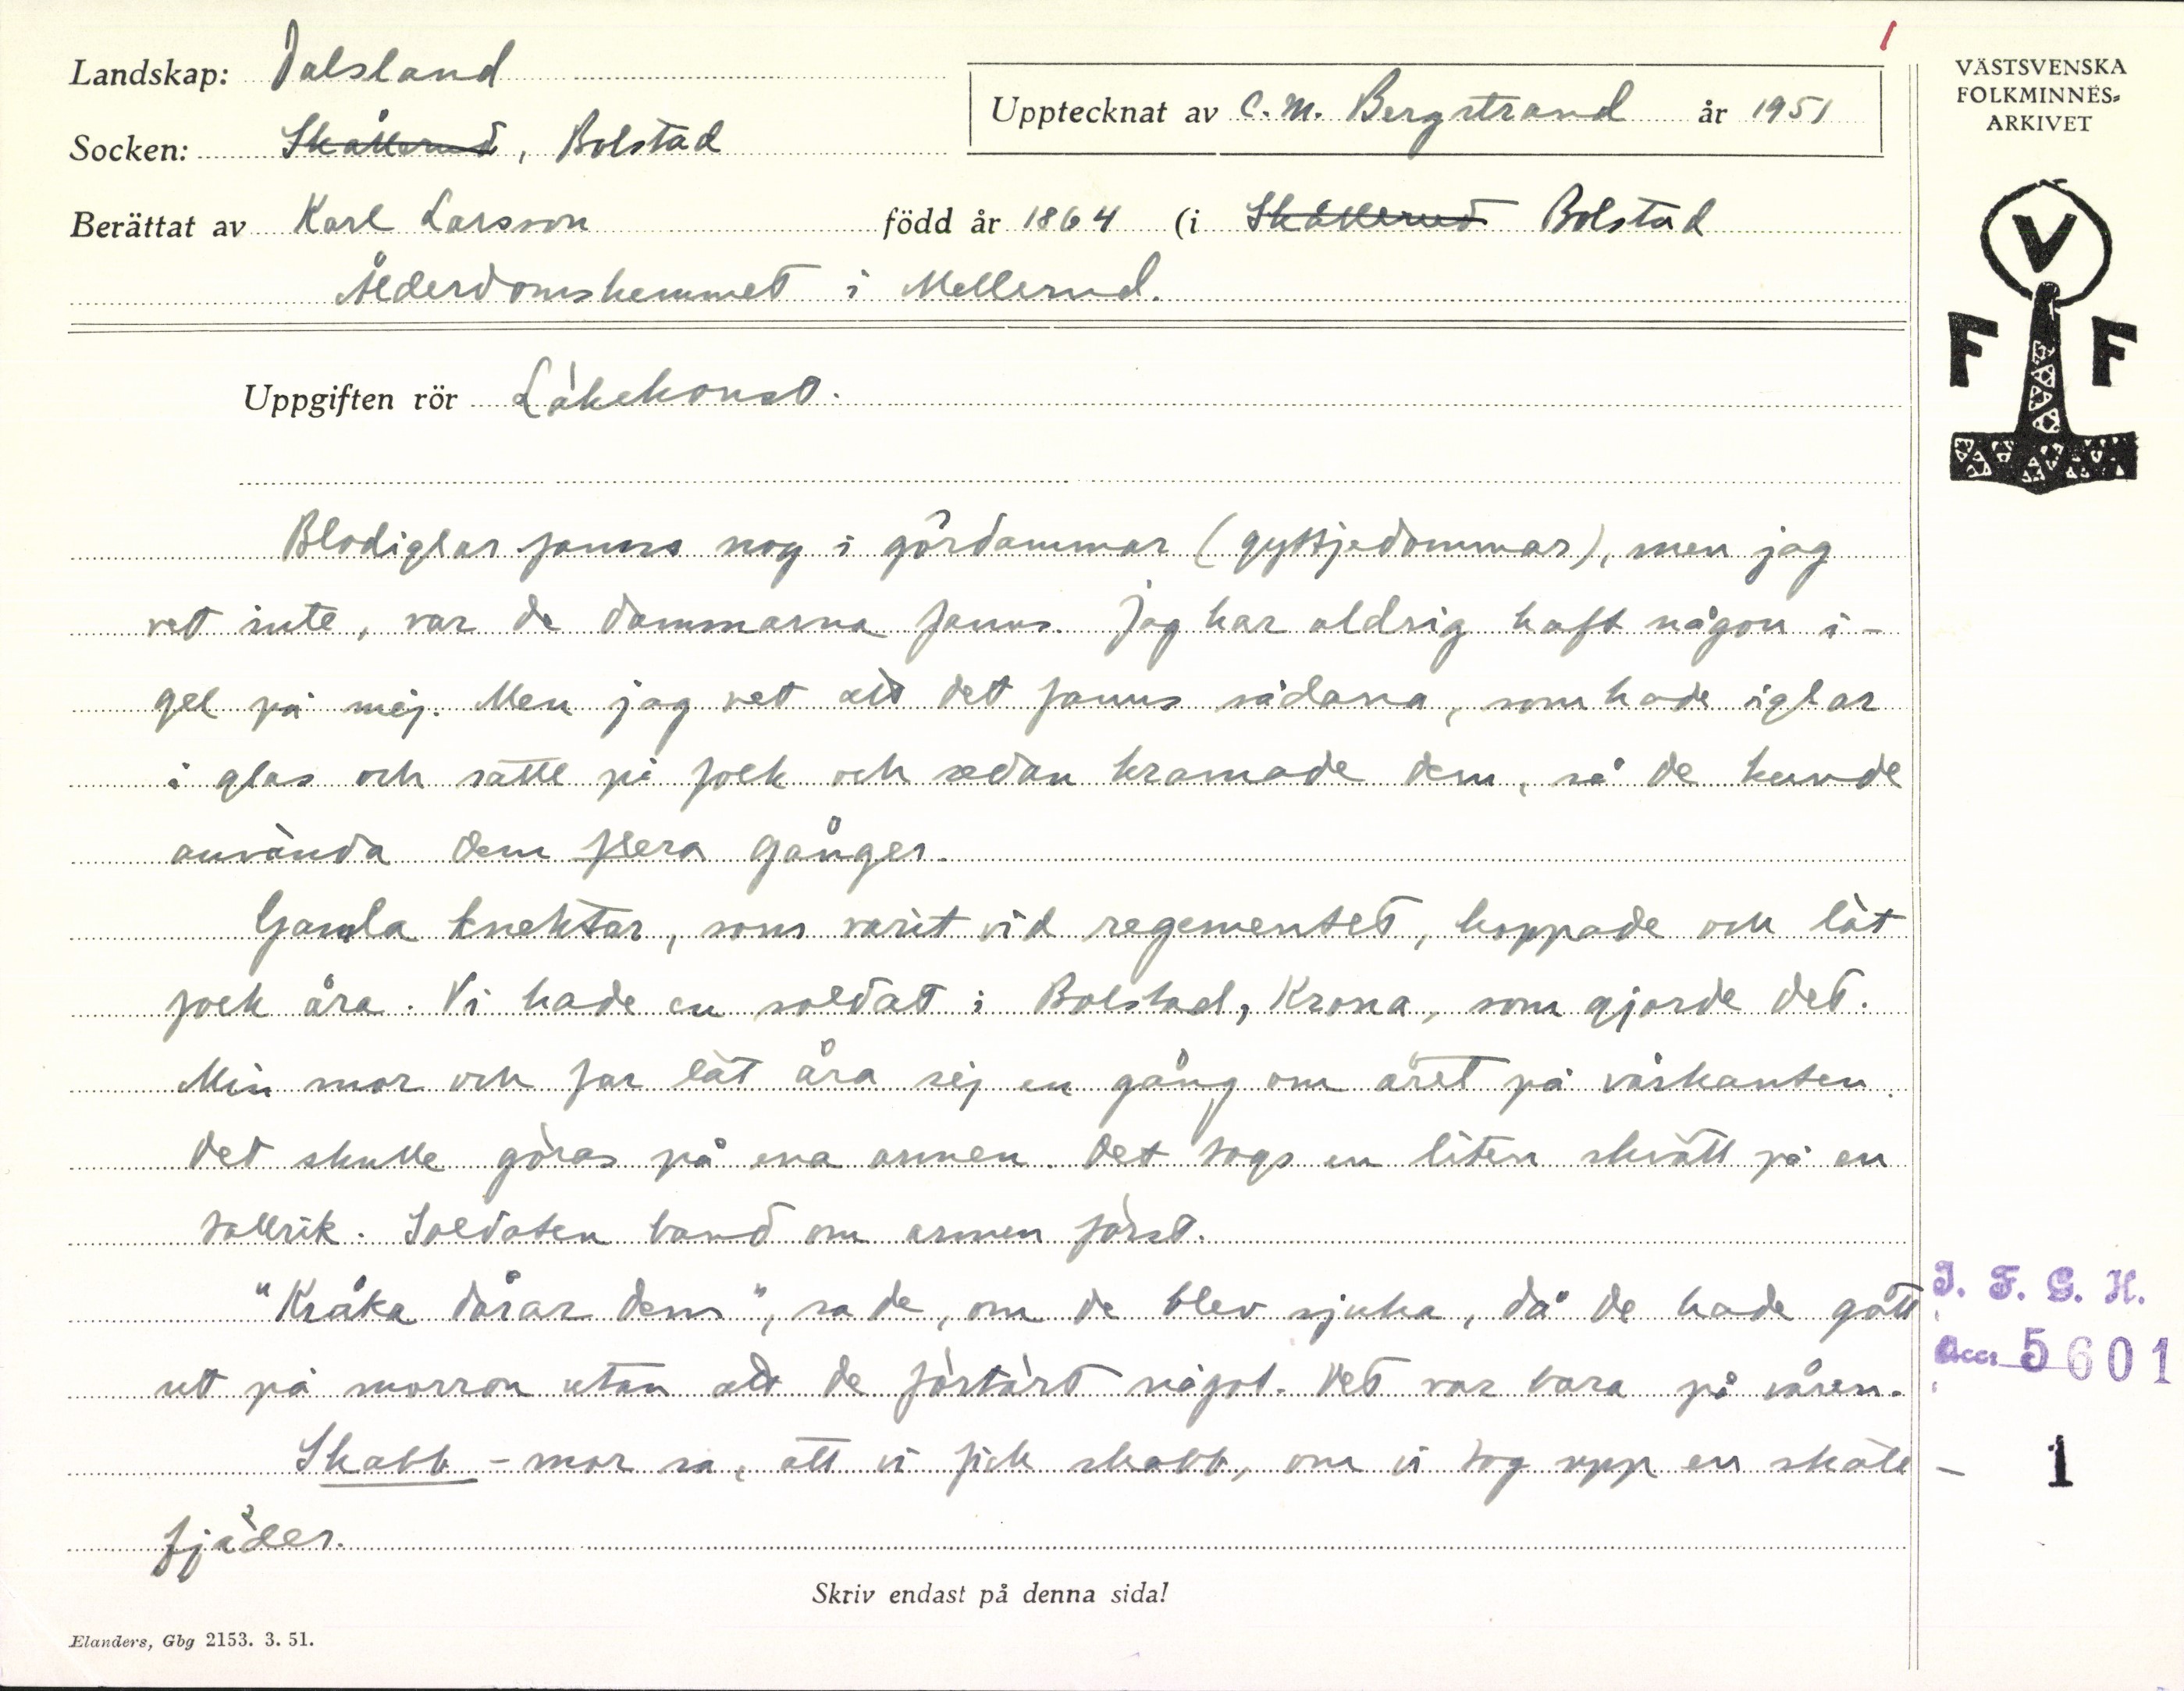 Landskap: Dalsland
Socken: Skållerud, Bolstad
Upptecknat av C. M. Bergstrand år 1951
Berättat av Karl Larsson född år 1864 (i Skållerud Bolstad
Ålderdomshemmet i Mellerud.
Uppgiften rör Läkekonst.
Blodiglar fanns nog i gördammar (gyttjedammar), men jag
vet inte, var de dammarna fanns. Jag har aldrig haft någon i-
gel på mej. Men jag vet att det fanns sådana, som hade iglar
i glas och satte på folk och sedan kramade dem, så de kunde
använda dem flera gånger.
Gamla knektar, som varit vid regementet, koppade och lät
folk åra. Vi hade en soldat i Bolstad, Krona, som gjorde det.
Min mor och far lät åra sej en gång om året på vårkanten.
Det skulle göras på ena armen. Det togs en liten skvätt på en
tallrik. Soldaten band om armen först.
"Kråka dårar dem", sa de, om de blev sjuka, då de hade gått
ut på morron utan att de förtärt något. Det var bara på våren.
Skabb - mor sa, att vi fick skabb, om vi tog upp en skate
fjäder.
Skriv endast på denna sida!
Elanders, Gbg 2153. 3. 51.
1
VÄSTSVENSKA
FOLKMINNES-
ARKIVET
V
F F
I. F. G. H.
Acc 5601
- 1